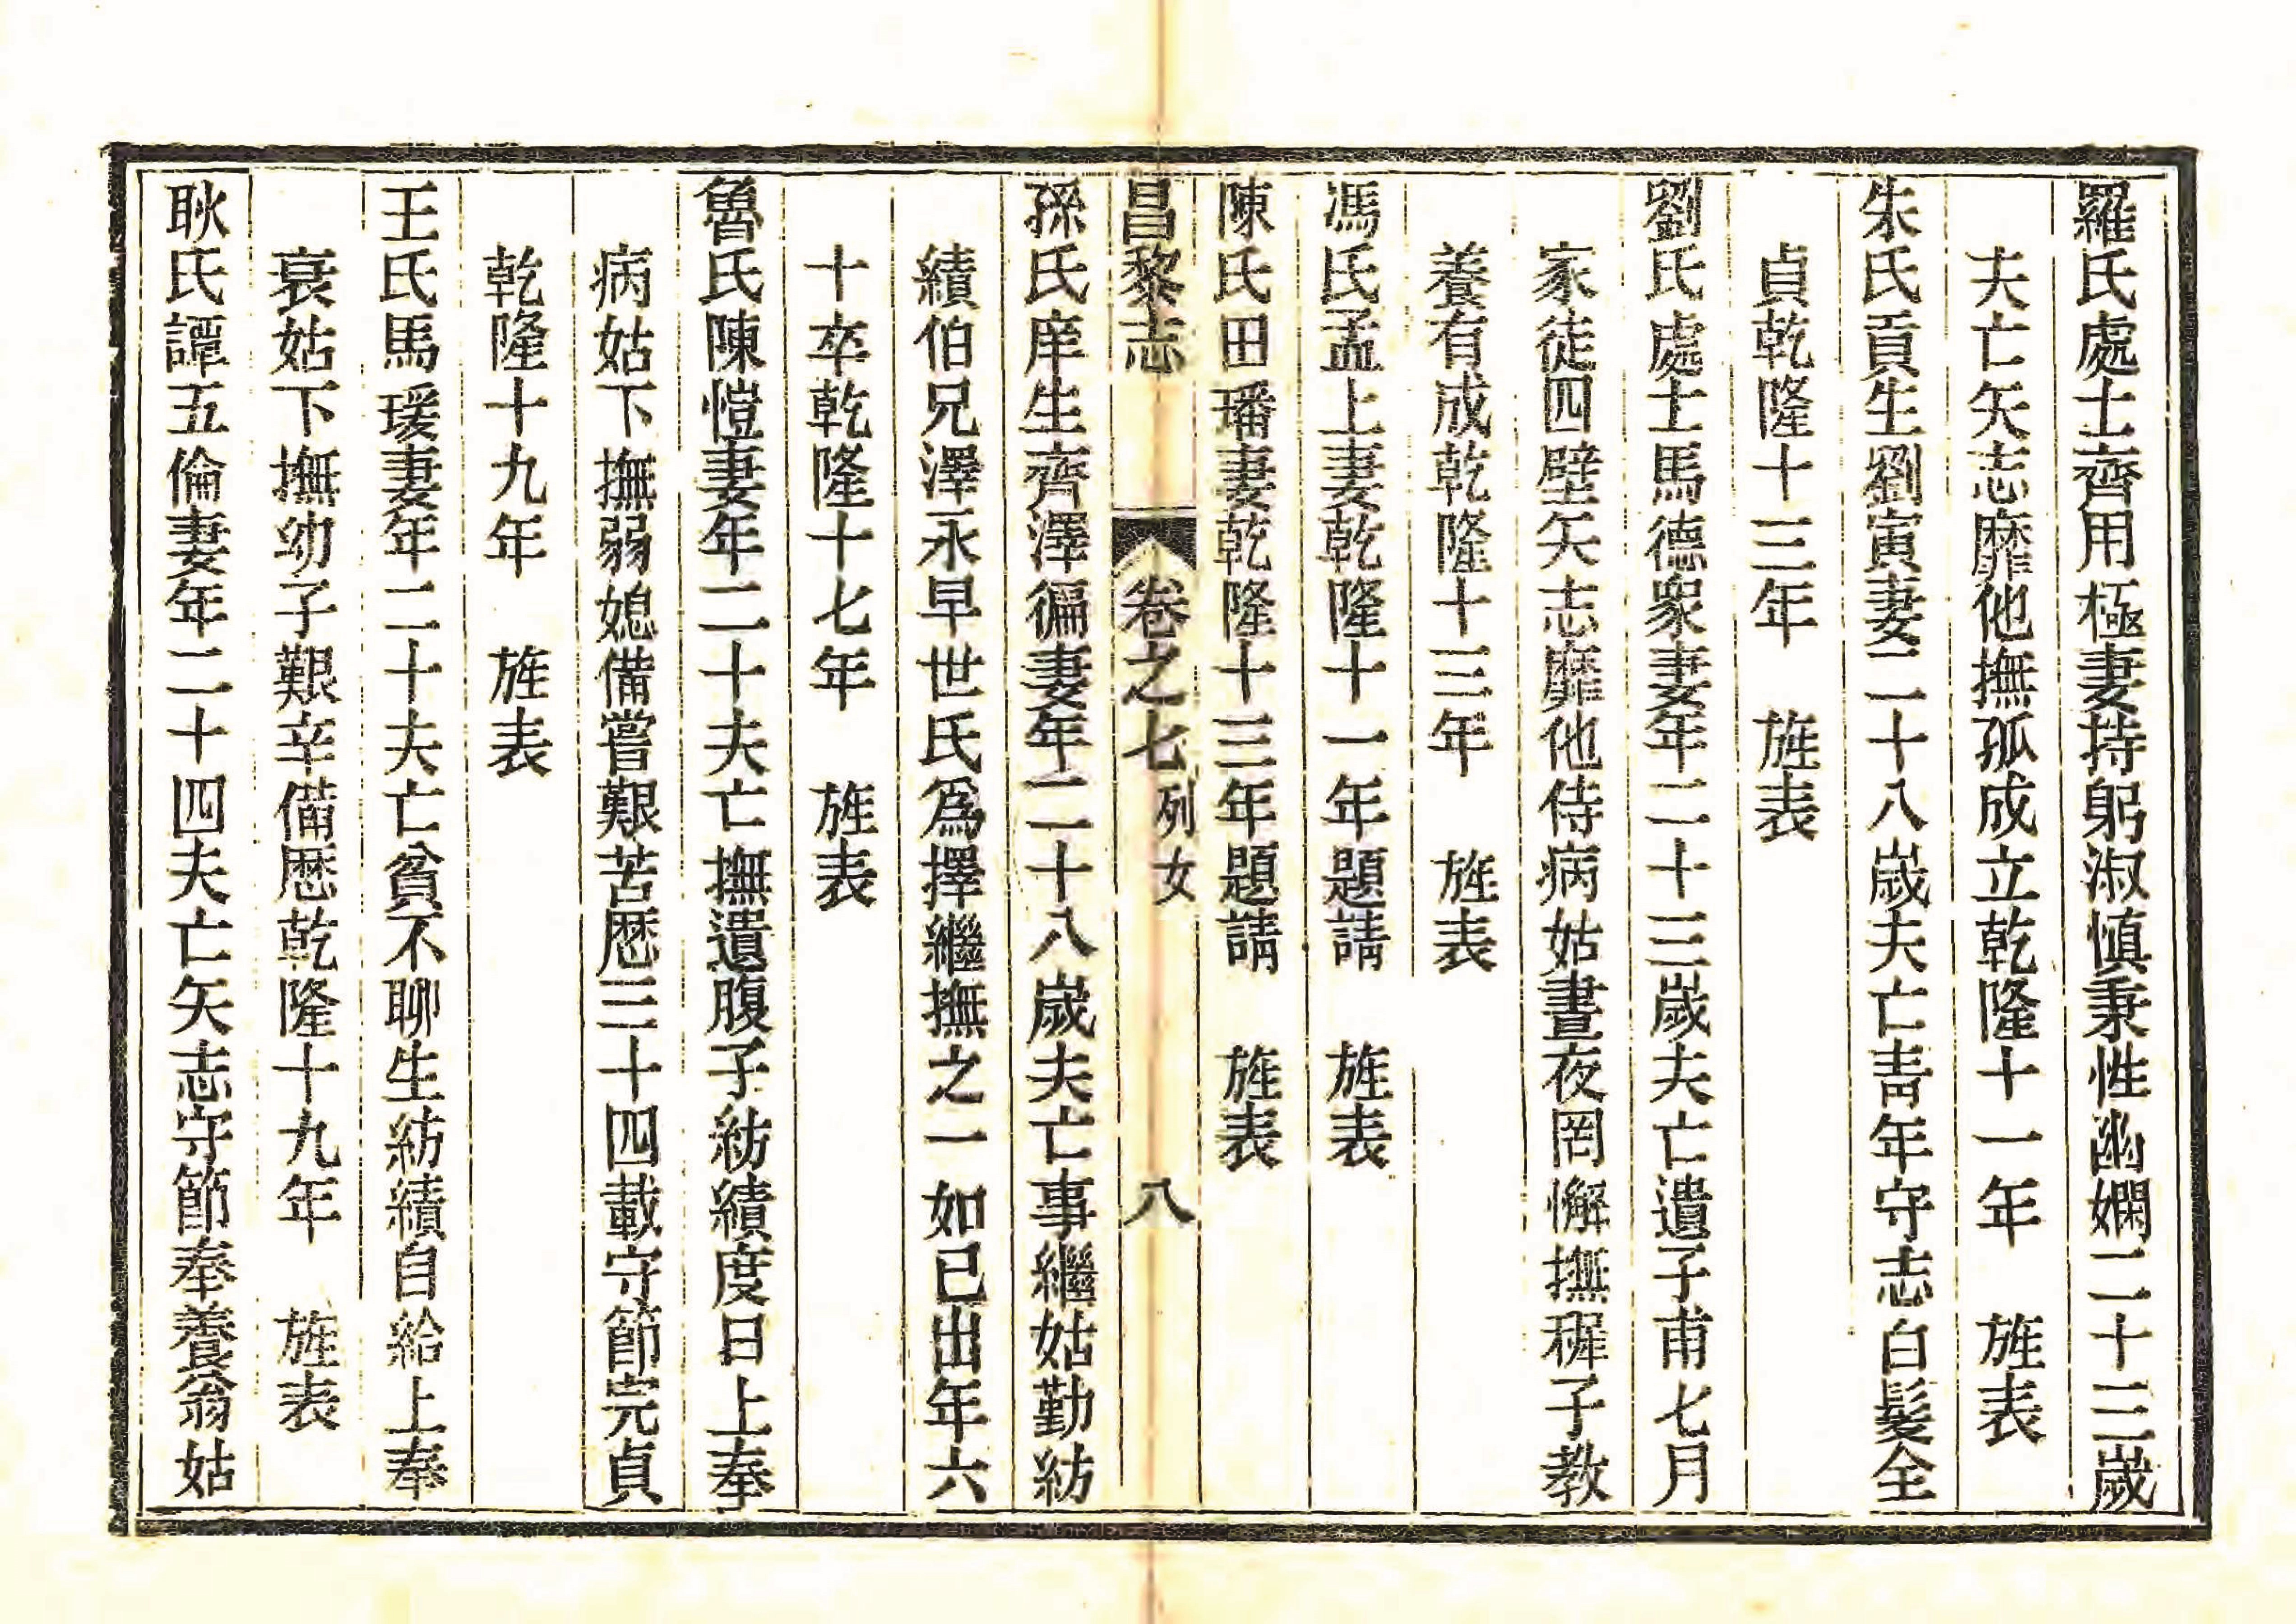 羅氏處士齊用極妻持躬淑慎秉性幽嫻二十三歲
夫亡矢志靡他撫孤成立乾隆十一年　旌表
朱氏貢生劉寅妻二十八歲夫亡青年守志白髮全
貞乾隆十三年　旌表
劉氏處士馬德衆妻年二十三歲夫亡遺子甫七月
家徒四壁矢志靡他侍病姑晝夜罔懈撫穉子教
養有成乾隆十三年　旌表
馮氏孟上妻乾隆十一年題請　旌表
陳氏田璠妻乾隆十三年題請　旌表
昌黎志　卷之七列女　八
孫氏庠生齊澤徧妻年二十八歲夫亡事繼姑勤紡
績伯兄澤永早世氏爲擇繼撫之一如已出年六
十卒乾隆十七年　旌表
魯氏陳愷妻年二十夫亡撫遺腹子紡績度日上奉
病姑下撫弱媳備嘗艱苦歴三十四載守節完貞
乾隆十九年　旌表
王氏馬瑗妻年二十夫亡貧不聊生紡績自給上奉
衰姑下撫幼子艱辛備歴乾隆十九年　旌表
耿氏譚五倫妻年二十四夫亡矢志守節奉養翁姑